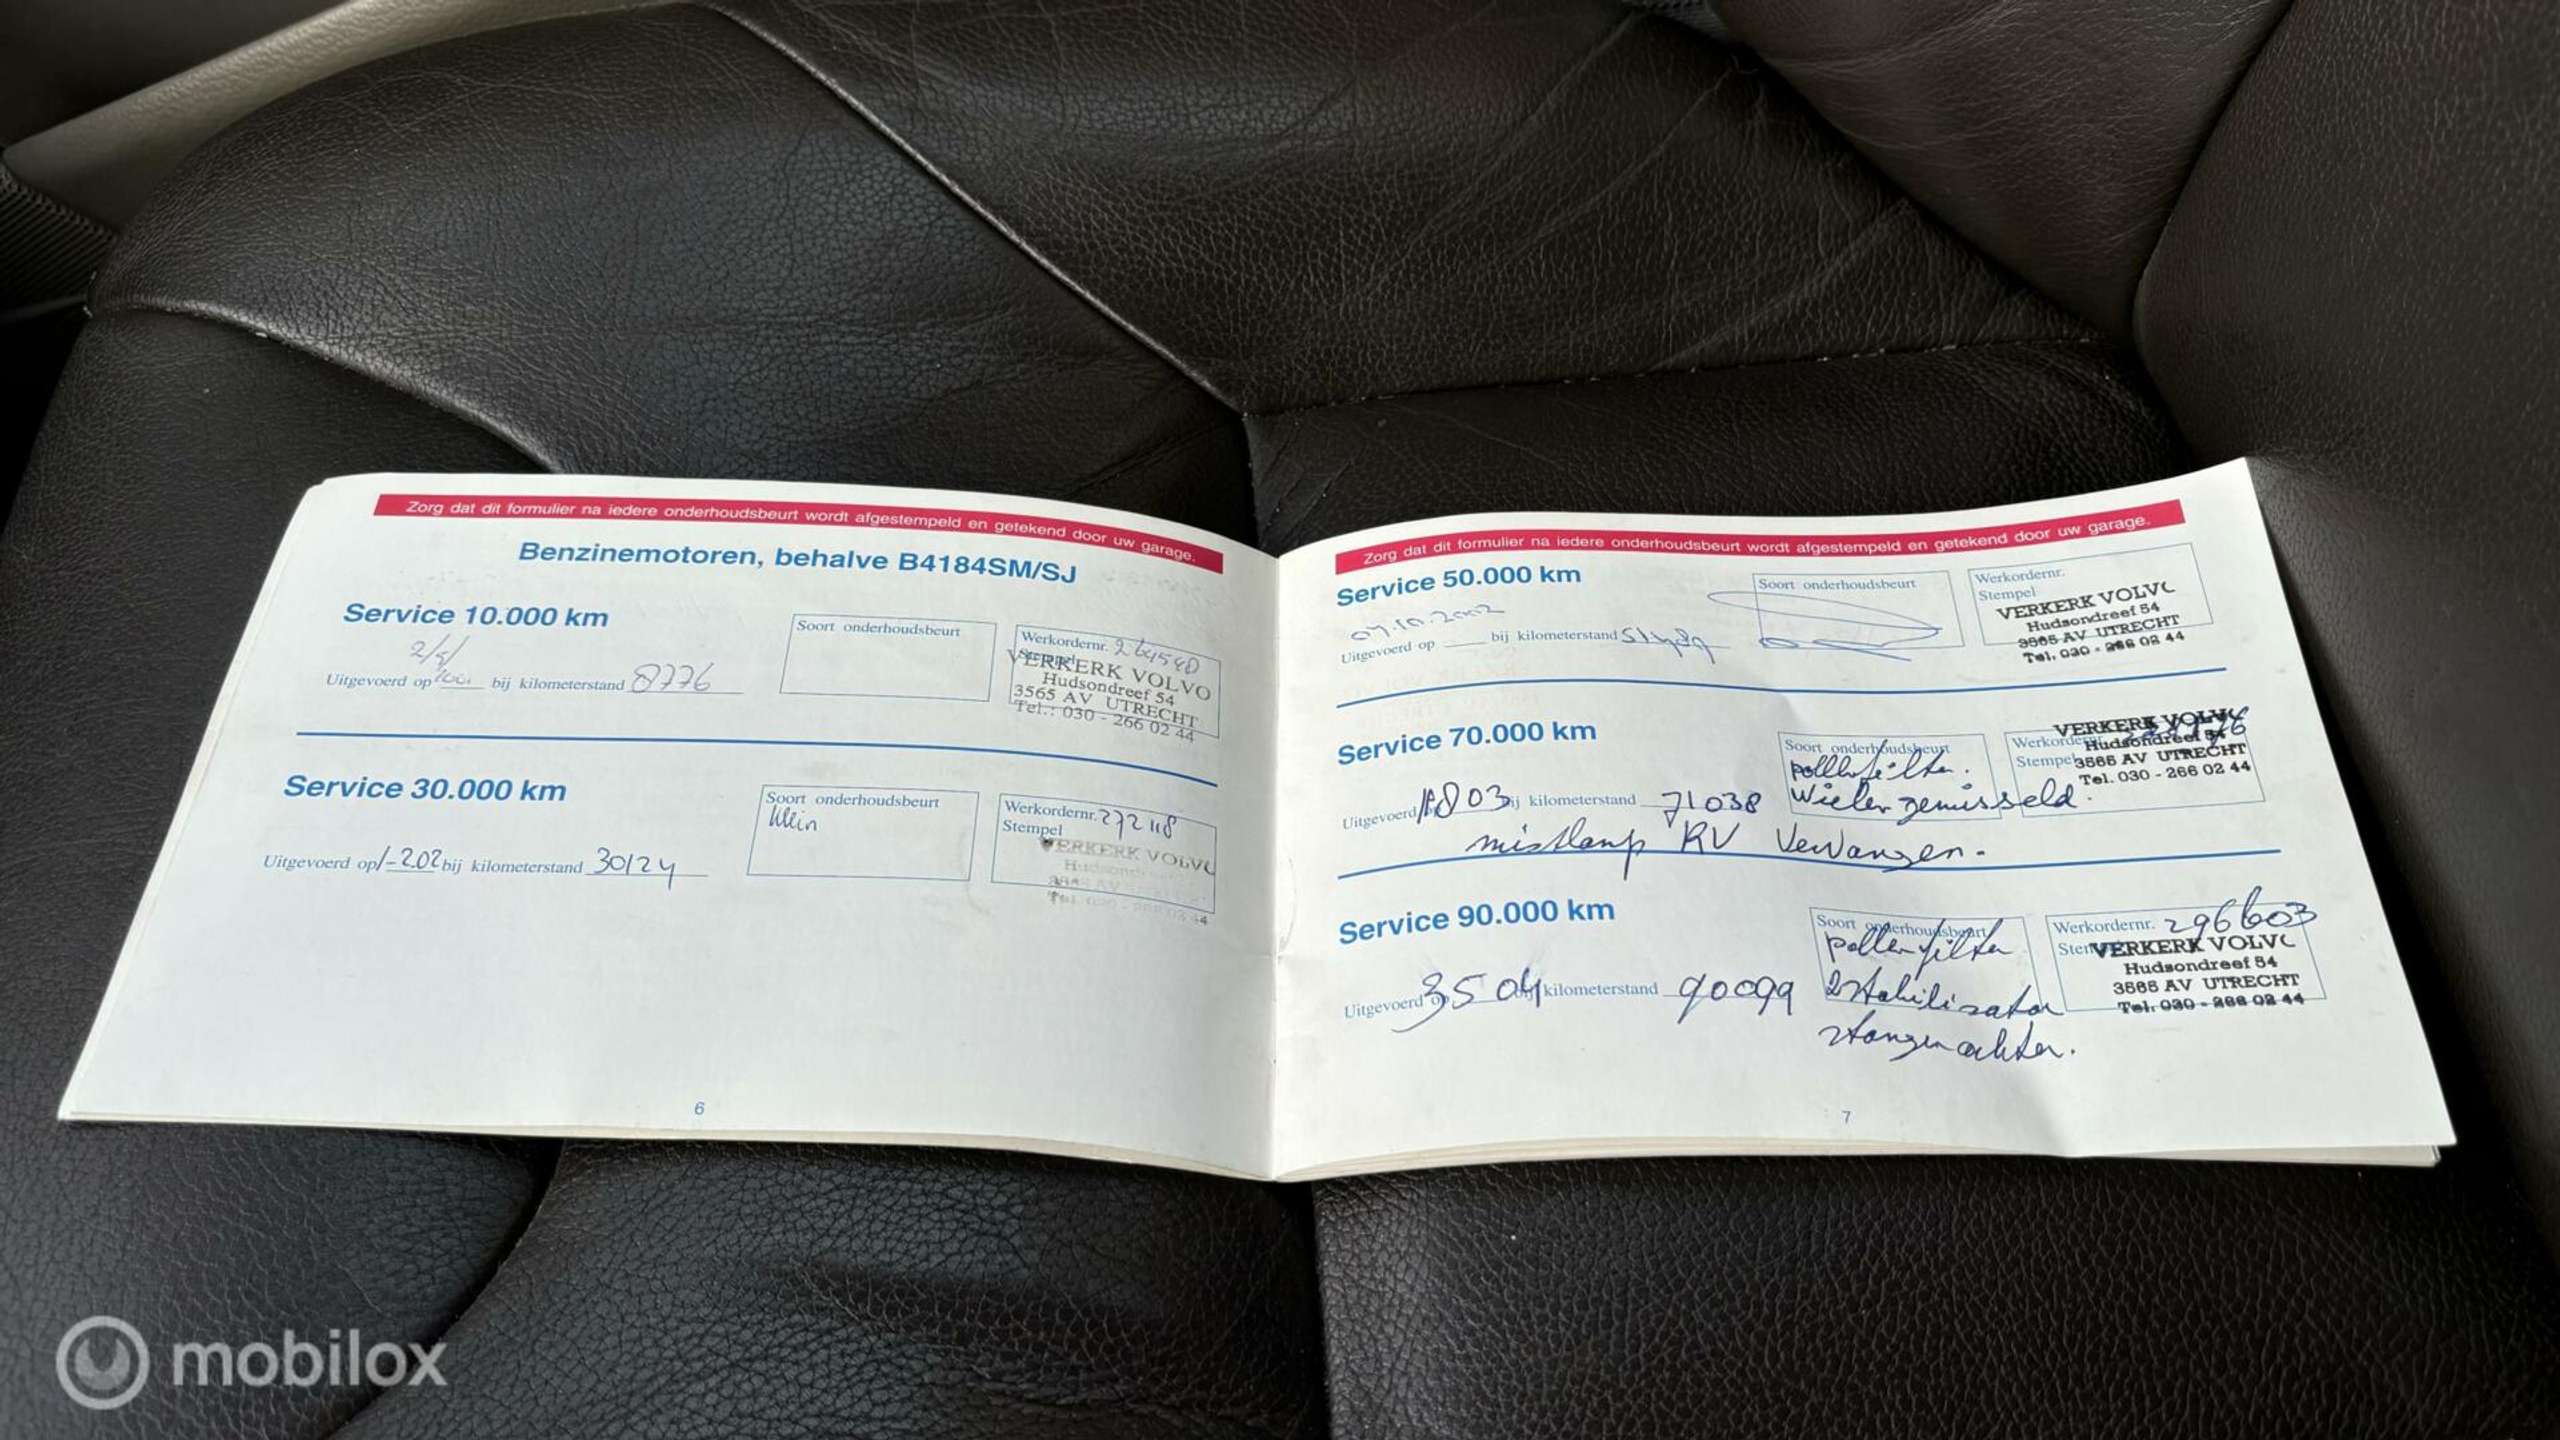 Zorg dat dit formulier na iedere onderhoudsbeurt wordt afgestempeld en getekend door uw garage.
Benzinemotoren, behalve B4184SM/SJ
Service 10.000 km
Soort onderhoudsbeurt
Werkordernr.
Stempel
VERKERK VOLVO
Hudsondreef 54
3565 AV UTRECHT
Tel.: 030 - 266 02 44
2/5/
Uitgevoerd op bij kilometerstand 8776
Service 30.000 km
Soort onderhoudsbeurt
klein
Werkordernr. 272118
Stempel
VERKERK VOLVO
Uitgevoerd op 1-202 bij kilometerstand 30124
6
Zorg dat dit formulier na iedere onderhoudsbeurt wordt afgestempeld en getekend door uw garage.
Service 50.000 km
Soort onderhoudsbeurt
Werkordernr.
Stempel
VERKERK VOLVO
Hudsondreef 54
3565 AV UTRECHT
Tel. 030 - 266 02 44
07.10.2002
Uitgevoerd op bij kilometerstand
Service 70.000 km
Soort onderhoudsbeurt
pollenfilter.
Wielen gewisseld.
Werkordernr.
Stempel
VERKERK VOLVO
Hudsondreef 54
3565 AV UTRECHT
Tel. 030 - 266 02 44
Uitgevoerd bij kilometerstand 71038
mistlamp RV vervangen.
Service 90.000 km
Soort onderhoudsbeurt
pollenfilter
2 stabilisator
stangen achter.
Werkordernr. 296603
Stempel
VERKERK VOLVO
Hudsondreef 54
3565 AV UTRECHT
Tel. 030 - 266 02 44
Uitgevoerd op 3 5 04 bij kilometerstand 90099
7
mobilox